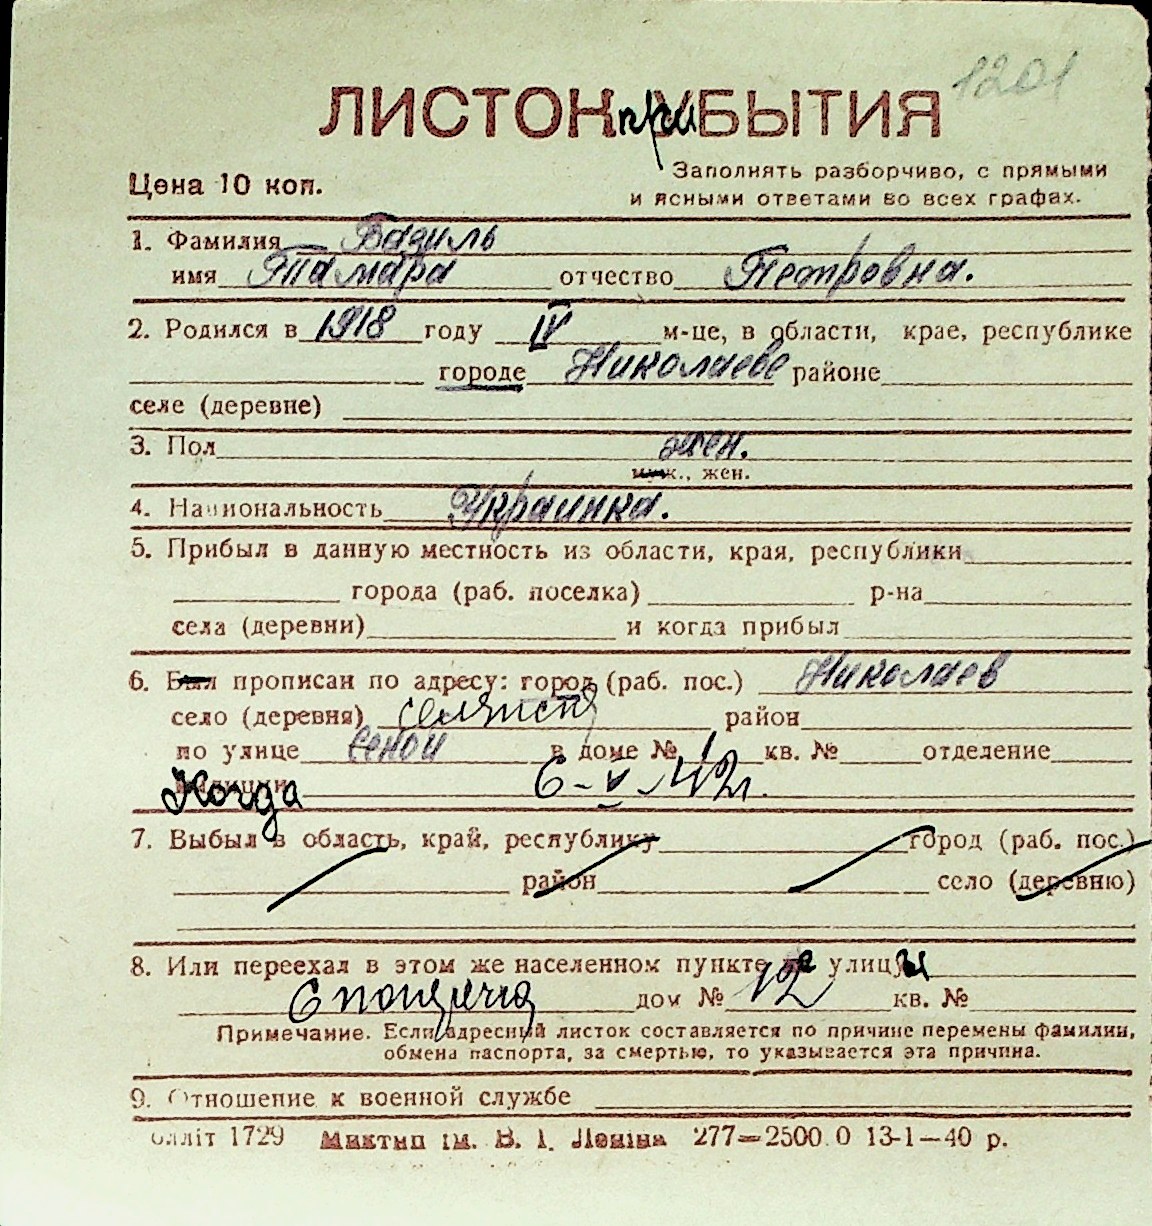 1201
ЛИСТОК при УБЫТИЯ
Цена 10 коп.
Заполнять разборчиво, с прямыми
и ясными ответами во всех графах.
1. Фамилия Вадиль
имя Тамара отчество Петровна.
2. Родился в 1918 году IV м-це, в области, крае, республике
городе Николаеве районе
селе (деревне)
3. Пол жен.
муж., жен.
4. Национальность Украинка.
5. Прибыл в данную местность из области, края, республики
города (раб. поселка) р-на
села (деревни) и когда прибыл
6. Был прописан по адресу: город (раб. пос.) Николаев
село (деревня) район
по улице Сеной в доме № 1 кв. № отделение
милиции Когда 6-V-42г.
7. Выбыл в область, край, республику город (раб. пос.)
район село (деревню)
8. Или переехал в этом же населенном пункте улицы
дом № 12 кв. №
Примечание. Если адресный листок составляется по причине перемены фамилии,
обмена паспорта, за смертью, то указывается эта причина.
9. Отношение к военной службе
олліт 1729 Миктип ім. В. І. Леніна 277—2500.0 13-1—40 р.